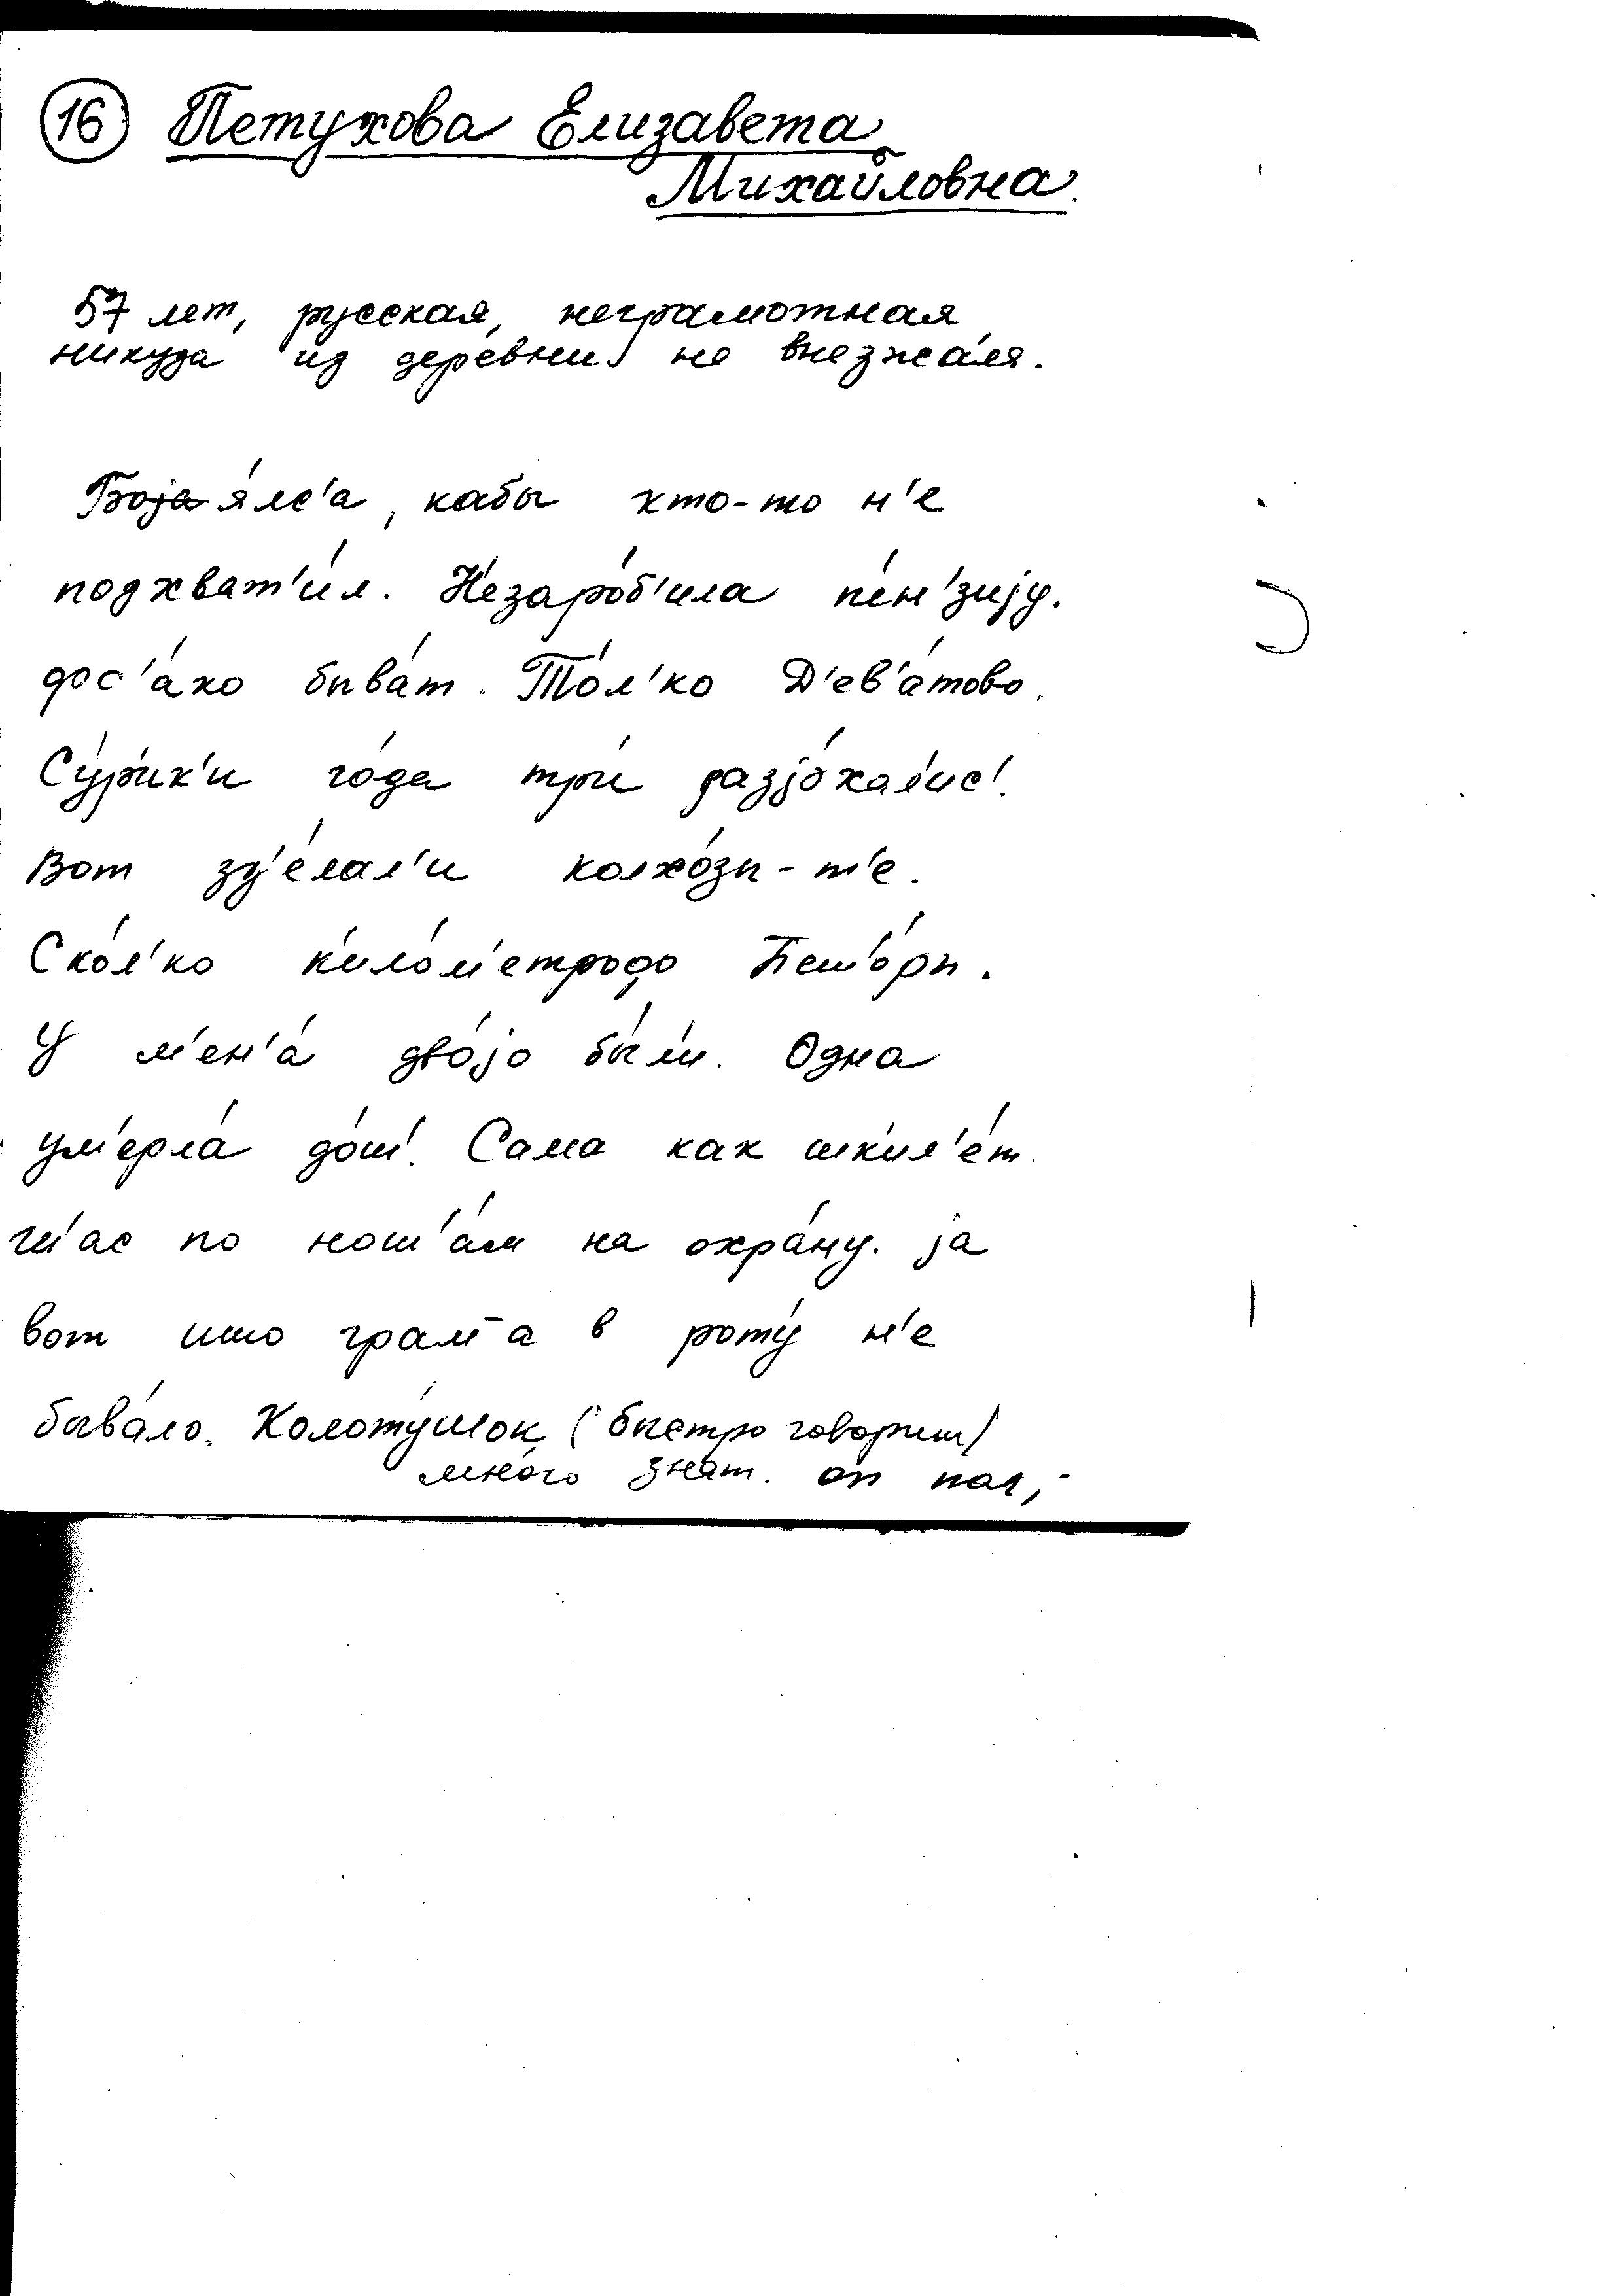 16 Петухова Елизавета
Михайловна.
57 лет, русская, неграмотная
никуда из дере́вни не выезжа́ла.
Бојая́лс'а, кабы хто-то н'е
подхват'и́л. Н'езаро́б'ила п'е́н'зију.
фс'а́ко быва́т. То́л'ко Д'ев'а́тово.
Су́р'ик'и го́да тр'и разjо́хал'ис'.
Вот зд'е́лал'и колхо́зы-т'е.
Ско́л'ко к'ило́м'етродо Печ'о́ры.
У м'ен'а́ дво́јо бы́л'и. Одна
ум'ерла́ до́ш'. Сама как шк'ил'е́т.
по нош'а́м на охра́ну. ја
вот ишо грам̄а в роту́ н'е
быва́ло. Колоту́шок (быстро говориш)
мно́го знат. оп пол,-